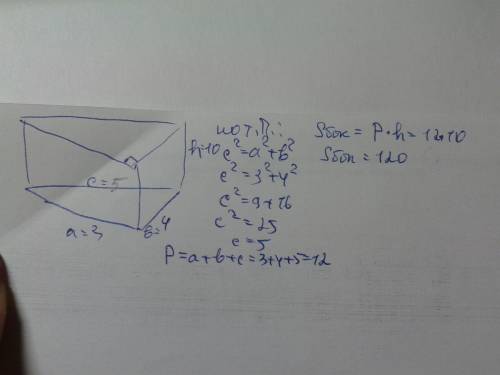 c=5
a=3
b=4
h=10
по т. П.:
c²=a²+b²
c²=3²+4²
c²=9+16
c²=25
c=5
P=a+b+c=3+4+5=12
Sбок = P·h=12·10
Sбок = 120